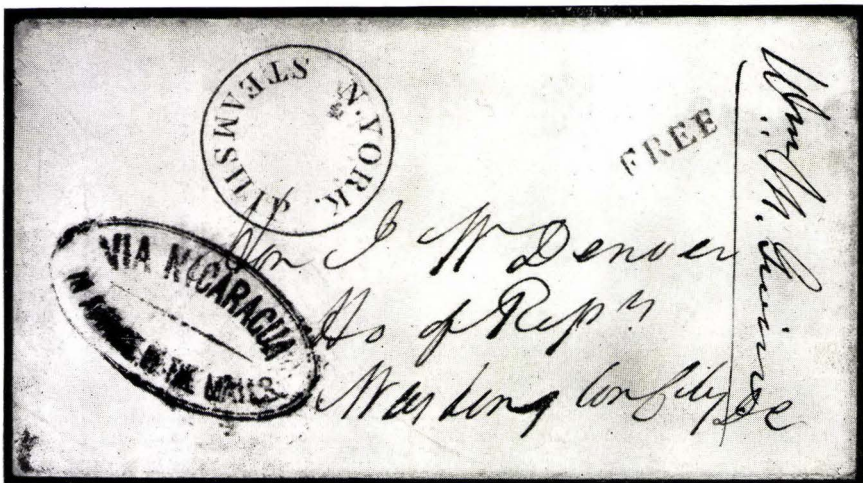 N. YORK.
STEAMSHIP
FREE
Wm M. Gwin
VIA NICARAGUA
IN ADVANCE OF THE MAILS
Hon J W Denver
Ho of Reps
Washington City DC